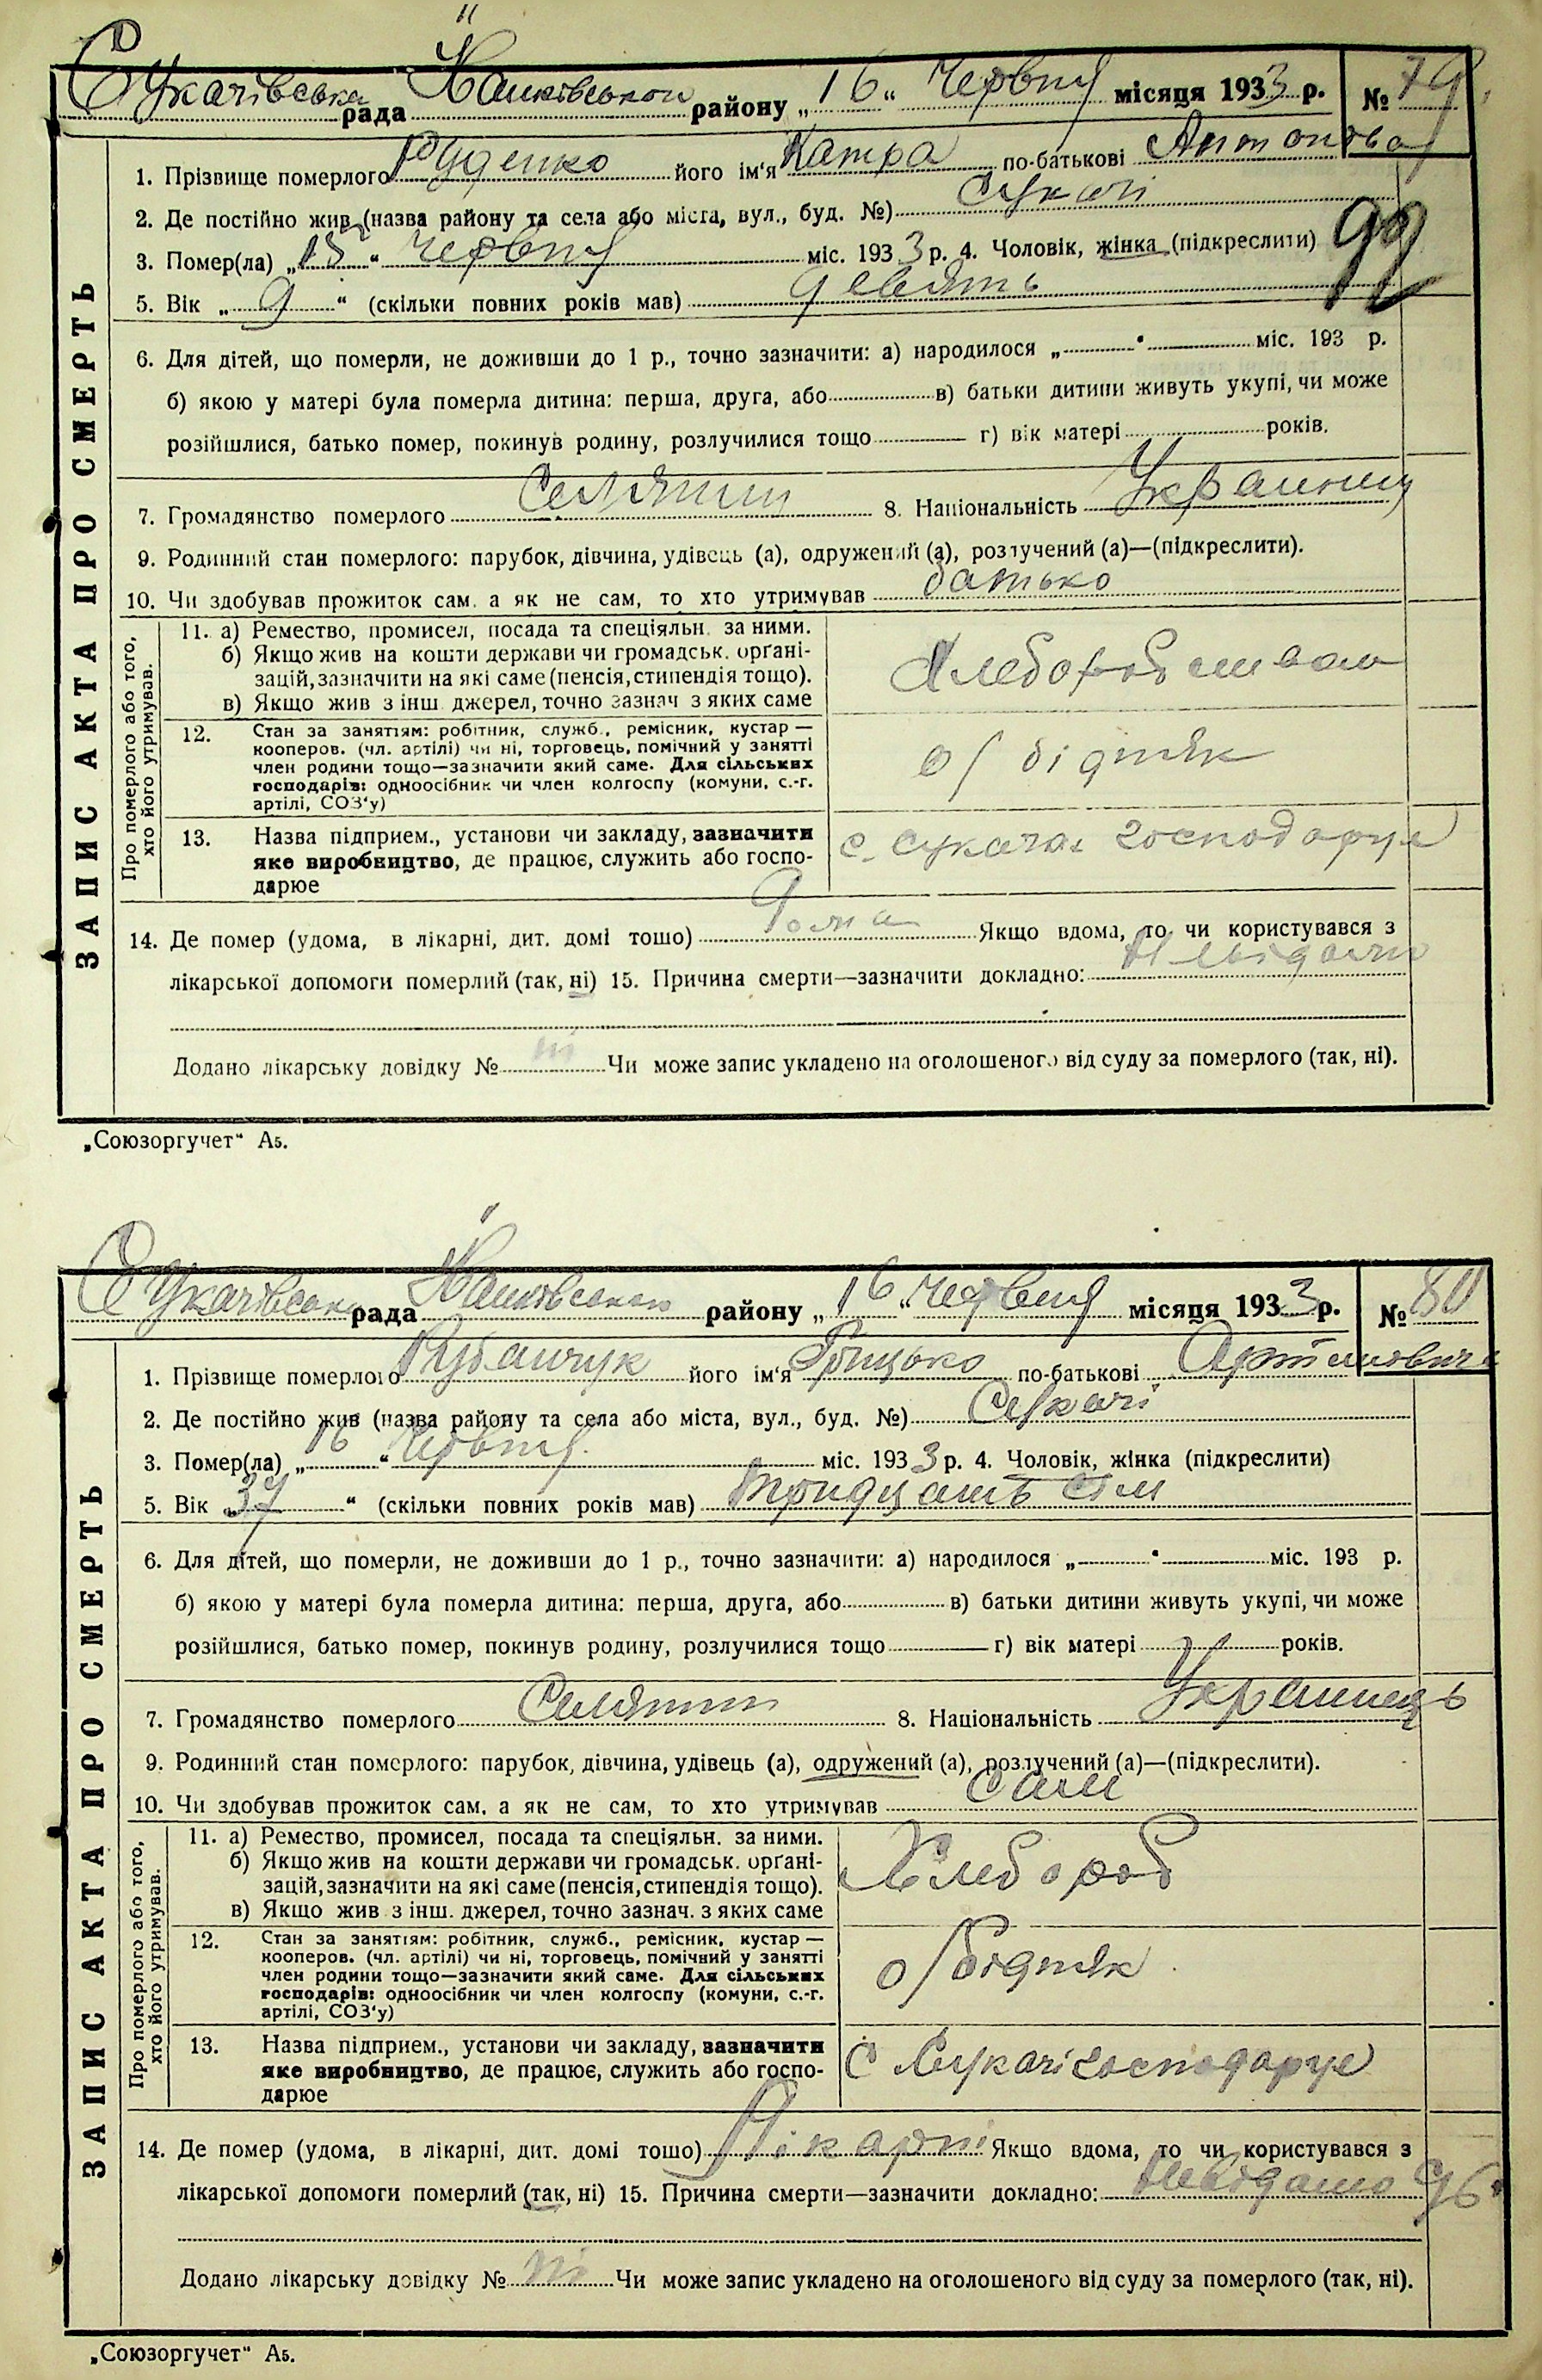 Сукачівська рада Іванківського району „16“ Червня місяця 1933 р. № 79
1. Прізвище померлого Руденко його ім'я Катра по-батькові Антонова
2. Де постійно жив (назва району та села або міста, вул., буд. №) Сукачі
3. Помер(ла) „15“ Червня міс. 1933 р. 4. Чоловік, жінка (підкреслити) 99
5. Вік „9“ (скільки повних років мав) девять
6. Для дітей, що померли, не доживши до 1 р., точно зазначити: а) народилося „ “ міс. 193 р.
б) якою у матері була померла дитина: перша, друга, або в) батьки дитини живуть укупі, чи може
розійшлися, батько помер, покинув родину, розлучилися тощо г) вік матері років.
7. Громадянство померлого Селянин 8. Національність
9. Родинний стан померлого: парубок, дівчина, удівець (а), одружений (а), розлучений (а)—(підкреслити).
10. Чи здобував прожиток сам, а як не сам, то хто утримував батько
ЗАПИС АКТА ПРО СМЕРТЬ
Про померлого або того, хто його утримував.
11. а) Ремество, промисел, посада та спеціяльн. за ними.
б) Якщо жив на кошти держави чи громадськ. орґані-
зацій, зазначити на які саме (пенсія, стипендія тощо).
в) Якщо жив з інш. джерел, точно зазнач з яких саме
12. Стан за занятіям: робітник, служб., ремісник, кустар —
кооперов. (чл. артілі) чи ні, торговець, помічний у занятті
член родини тощо—зазначити який саме. Для сільських
господарів: одноосібник чи член колгоспу (комуни, с.-г.
артілі, СОЗ'у)
о/бідняк
13. Назва підприєм., установи чи закладу, зазначити
яке виробництво, де працює, служить або госпо-
дарює
с. Сукачах господарує
14. Де помер (удома, в лікарні, дит. домі тощо) Дома Якщо вдома, то чи користувався з
лікарської допомоги померлий (так, ні) 15. Причина смерти—зазначити докладно: Невідомо
Додано лікарську довідку № ні Чи може запис укладено на оголошеного від суду за померлого (так, ні).
„Союзоргучет“ А5.
Сукачівська рада Іванківського району „16“ Червня місяця 1933 р. № 80
1. Прізвище померлого Рубанчук його ім'я Грицько по-батькові
2. Де постійно жив (назва району та села або міста, вул., буд. №) Сукачі
3. Помер(ла) „16“ Червня міс. 1933 р. 4. Чоловік, жінка (підкреслити)
5. Вік „37“ (скільки повних років мав) тридцать сім
6. Для дітей, що померли, не доживши до 1 р., точно зазначити: а) народилося „ “ міс. 193 р.
б) якою у матері була померла дитина: перша, друга, або в) батьки дитини живуть укупі, чи може
розійшлися, батько помер, покинув родину, розлучилися тощо г) вік матері років.
7. Громадянство померлого Селянин 8. Національність Украинець
9. Родинний стан померлого: парубок, дівчина, удівець (а), одружений (а), розлучений (а)—(підкреслити).
10. Чи здобував прожиток сам, а як не сам, то хто утримував Сам
ЗАПИС АКТА ПРО СМЕРТЬ
Про померлого або того, хто його утримував.
11. а) Ремество, промисел, посада та спеціяльн. за ними.
б) Якщо жив на кошти держави чи громадськ. орґані-
зацій, зазначити на які саме (пенсія, стипендія тощо).
в) Якщо жив з інш. джерел, точно зазнач. з яких саме
Хлебороб
12. Стан за занятіям: робітник, служб., ремісник, кустар —
кооперов. (чл. артілі) чи ні, торговець, помічний у занятті
член родини тощо—зазначити який саме. Для сільських
господарів: одноосібник чи член колгоспу (комуни, с.-г.
артілі, СОЗ'у)
о/бідняк
13. Назва підприєм., установи чи закладу, зазначити
яке виробництво, де працює, служить або госпо-
дарює
С Сукачі господарує
14. Де помер (удома, в лікарні, дит. домі тощо) Лікарні Якщо вдома, то чи користувався з
лікарської допомоги померлий (так, ні) 15. Причина смерти—зазначити докладно: Невідомо 96
Додано лікарську довідку № ні Чи може запис укладено на оголошеного від суду за померлого (так, ні).
„Союзоргучет“ А5.